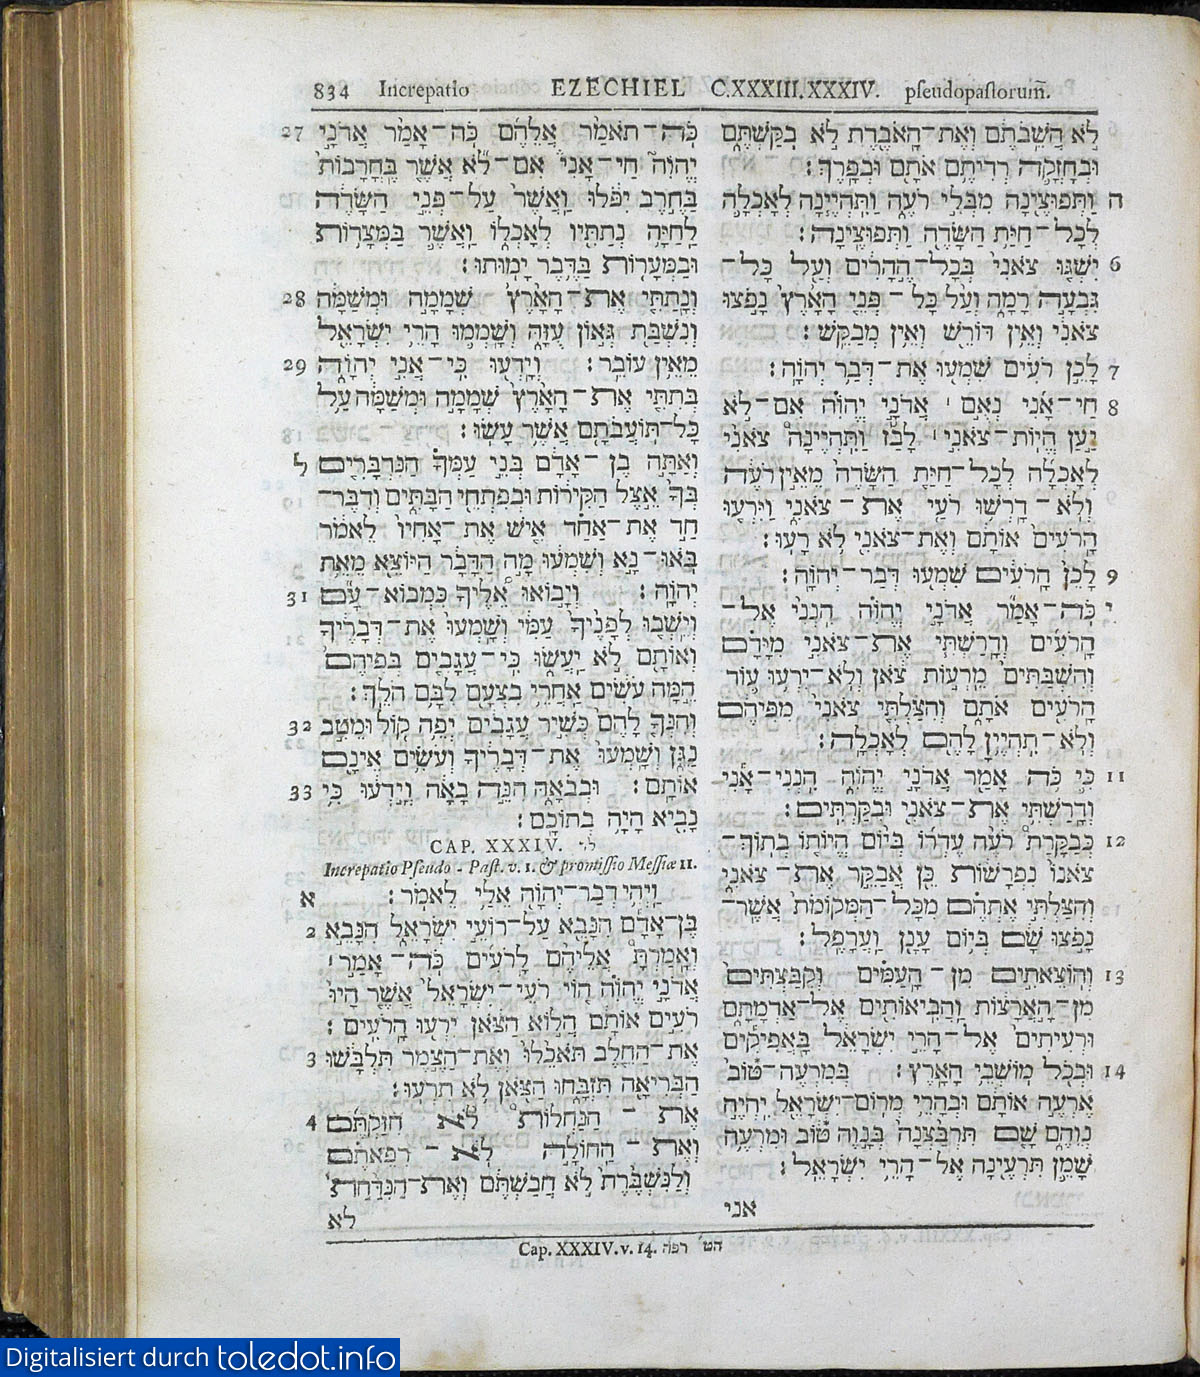 834 Increpatio EZECHIEL C.XXXIII.XXXIV. pſeudopaſtorum̃.
27 כֹּה־תֹאמַר אֲלֵהֶם כֹּה־אָמַר אֲדֹנָי
יְהוִֹה חַי־אָנִי אִם־לֹא אֲשֶׁר בֶּחֳרָבוֹת
בַּחֶרֶב יִפֹּלוּ וַאֲשֶׁר עַל־פְּנֵי הַשָּׂדֶה
לַחַיָּה נְתַתִּיו לְאָכְלוֹ וַאֲשֶׁר בַּמְּצָדוֹת
וּבַמְּעָרוֹת בַּדֶּבֶר יָמוּתוּ׃
28 וְנָתַתִּי אֶת־הָאָרֶץ שְׁמָמָה וּמְשַׁמָּה
וְנִשְׁבַּת גְּאוֹן עֻזָּהּ וְשָׁמְמוּ הָרֵי יִשְׂרָאֵל
29 מֵאֵין עוֹבֵר׃ וְיָדְעוּ כִּי־אֲנִי יְהוָֹה
בְּתִתִּי אֶת־הָאָרֶץ שְׁמָמָה וּמְשַׁמָּה עַל
כָּל־תּוֹעֲבֹתָם אֲשֶׁר עָשׂוּ׃
ל וְאַתָּה בֶן־אָדָם בְּנֵי עַמְּךָ הַנִּדְבָּרִים
בְּךָ אֵצֶל הַקִּירוֹת וּבְפִתְחֵי הַבָּתִּים וְדִבֶּר־
חַד אֶת־אַחַד אִישׁ אֶת־אָחִיו לֵאמֹר
בֹּאוּ־נָא וְשִׁמְעוּ מָה הַדָּבָר הַיּוֹצֵא מֵאֵת
31 יְהוָֹה׃ וְיָבוֹאוּ אֵלֶיךָ כִּמְבוֹא־עָם
וְיֵשְׁבוּ לְפָנֶיךָ עַמִּי וְשָׁמְעוּ אֶת־דְּבָרֶיךָ
וְאוֹתָם לֹא יַעֲשׂוּ כִּי־עֲגָבִים בְּפִיהֶם
הֵמָּה עֹשִׂים אַחֲרֵי בִצְעָם לִבָּם הֹלֵךְ׃
32 וְהִנְּךָ לָהֶם כְּשִׁיר עֲגָבִים יְפֵה קוֹל וּמֵטִב
נַגֵּן וְשָׁמְעוּ אֶת־דְּבָרֶיךָ וְעֹשִׂים אֵינָם
33 אוֹתָם׃ וּבְבֹאָהּ הִנֵּה בָאָה וְיָדְעוּ כִּי
נָבִיא הָיָה בְתוֹכָם׃
CAP. XXXIV. לד
Increpatio Pſeudo-Paſt. v. 1. & promiſſio Meſſiæ 11.
א וַיְהִי דְבַר־יְהוָֹה אֵלַי לֵאמֹר׃
2 בֶּן־אָדָם הִנָּבֵא עַל־רוֹעֵי יִשְׂרָאֵל הִנָּבֵא
וְאָמַרְתָּ אֲלֵיהֶם לָרֹעִים כֹּה־אָמַר׀
אֲדֹנָי יְהוִֹה הוֹי רֹעֵי־יִשְׂרָאֵל אֲשֶׁר הָיוּ
רֹעִים אוֹתָם הֲלוֹא הַצֹּאן יִרְעוּ הָרֹעִים׃
3 אֶת־הַחֵלֶב תֹּאכֵלוּ וְאֶת־הַצֶּמֶר תִּלְבָּשׁוּ
הַבְּרִיאָה תִּזְבָּחוּ הַצֹּאן לֹא תִרְעוּ׃
4 אֶת־הַנַּחְלוֹת לֹא חִזַּקְתֶּם
וְאֶת־הַחוֹלָה לֹא־רִפֵּאתֶם
וְלַנִּשְׁבֶּרֶת לֹא חֲבַשְׁתֶּם וְאֶת־הַנִּדַּחַת
לא
לֹא הֲשֵׁבֹתֶם וְאֶת־הָאֹבֶדֶת לֹא בִקַּשְׁתֶּם
וּבְחָזְקָה רְדִיתֶם אֹתָם וּבְפָרֶךְ׃
ה וַתְּפוּצֶינָה מִבְּלִי רֹעֶה וַתִּהְיֶינָה לְאָכְלָה
לְכָל־חַיַּת הַשָּׂדֶה וַתְּפוּצֶינָה׃
6 יִשְׁגּוּ צֹאנִי בְּכָל־הֶהָרִים וְעַל כָּל־
גִּבְעָה רָמָה וְעַל כָּל־פְּנֵי הָאָרֶץ נָפֹצוּ
צֹאנִי וְאֵין דּוֹרֵשׁ וְאֵין מְבַקֵּשׁ׃
7 לָכֵן רֹעִים שִׁמְעוּ אֶת־דְּבַר יְהוָֹה׃
8 חַי־אָנִי נְאֻם׀ אֲדֹנָי יְהוִֹה אִם־לֹא
יַעַן הֱיוֹת־צֹאנִי׀ לָבַז וַתִּהְיֶינָה צֹאנִי
לְאָכְלָה לְכָל־חַיַּת הַשָּׂדֶה מֵאֵין רֹעֶה
וְלֹא־דָרְשׁוּ רֹעַי אֶת־צֹאנִי וַיִּרְעוּ
הָרֹעִים אוֹתָם וְאֶת־צֹאנִי לֹא רָעוּ׃
9 לָכֵן הָרֹעִים שִׁמְעוּ דְּבַר־יְהוָֹה׃
י כֹּה־אָמַר אֲדֹנָי יְהוִֹה הִנְנִי אֶל־
הָרֹעִים וְדָרַשְׁתִּי אֶת־צֹאנִי מִיָּדָם
וְהִשְׁבַּתִּים מֵרְעוֹת צֹאן וְלֹא־יִרְעוּ עוֹד
הָרֹעִים אֹתָם וְהִצַּלְתִּי צֹאנִי מִפִּיהֶם
וְלֹא־תִהְיֶיןָ לָהֶם לְאָכְלָה׃
11 כִּי כֹּה אָמַר אֲדֹנָי יְהוִֹה הִנְנִי־אָנִי
וְדָרַשְׁתִּי אֶת־צֹאנִי וּבִקַּרְתִּים׃
12 כְּבַקָּרַת רֹעֶה עֶדְרוֹ בְּיוֹם הֱיוֹתוֹ בְתוֹךְ־
צֹאנוֹ נִפְרָשׁוֹת כֵּן אֲבַקֵּר אֶת־צֹאנִי
וְהִצַּלְתִּי אֶתְהֶם מִכָּל־הַמְּקוֹמֹת אֲשֶׁר־
נָפֹצוּ שָׁם בְּיוֹם עָנָן וַעֲרָפֶל׃
13 וְהוֹצֵאתִים מִן־הָעַמִּים וְקִבַּצְתִּים
מִן־הָאֲרָצוֹת וַהֲבִיאוֹתִים אֶל־אַדְמָתָם
וּרְעִיתִים אֶל־הָרֵי יִשְׂרָאֵל בָּאֲפִיקִים
14 וּבְכֹל מוֹשְׁבֵי הָאָרֶץ׃ בְּמִרְעֶה־טּוֹב
אֶרְעֶה אוֹתָם וּבְהָרֵי מְרוֹם־יִשְׂרָאֵל יִהְיֶה
נְוֵהֶם שָׁם תִּרְבַּצְנָה בְּנָוֶה טּוֹב וּמִרְעֶה
שָׁמֵן תִּרְעֶינָה אֶל־הָרֵי יִשְׂרָאֵל׃
אני
Cap. XXXIV. v. 14. הט׳ רפה
Digitalisiert durch toledot.info